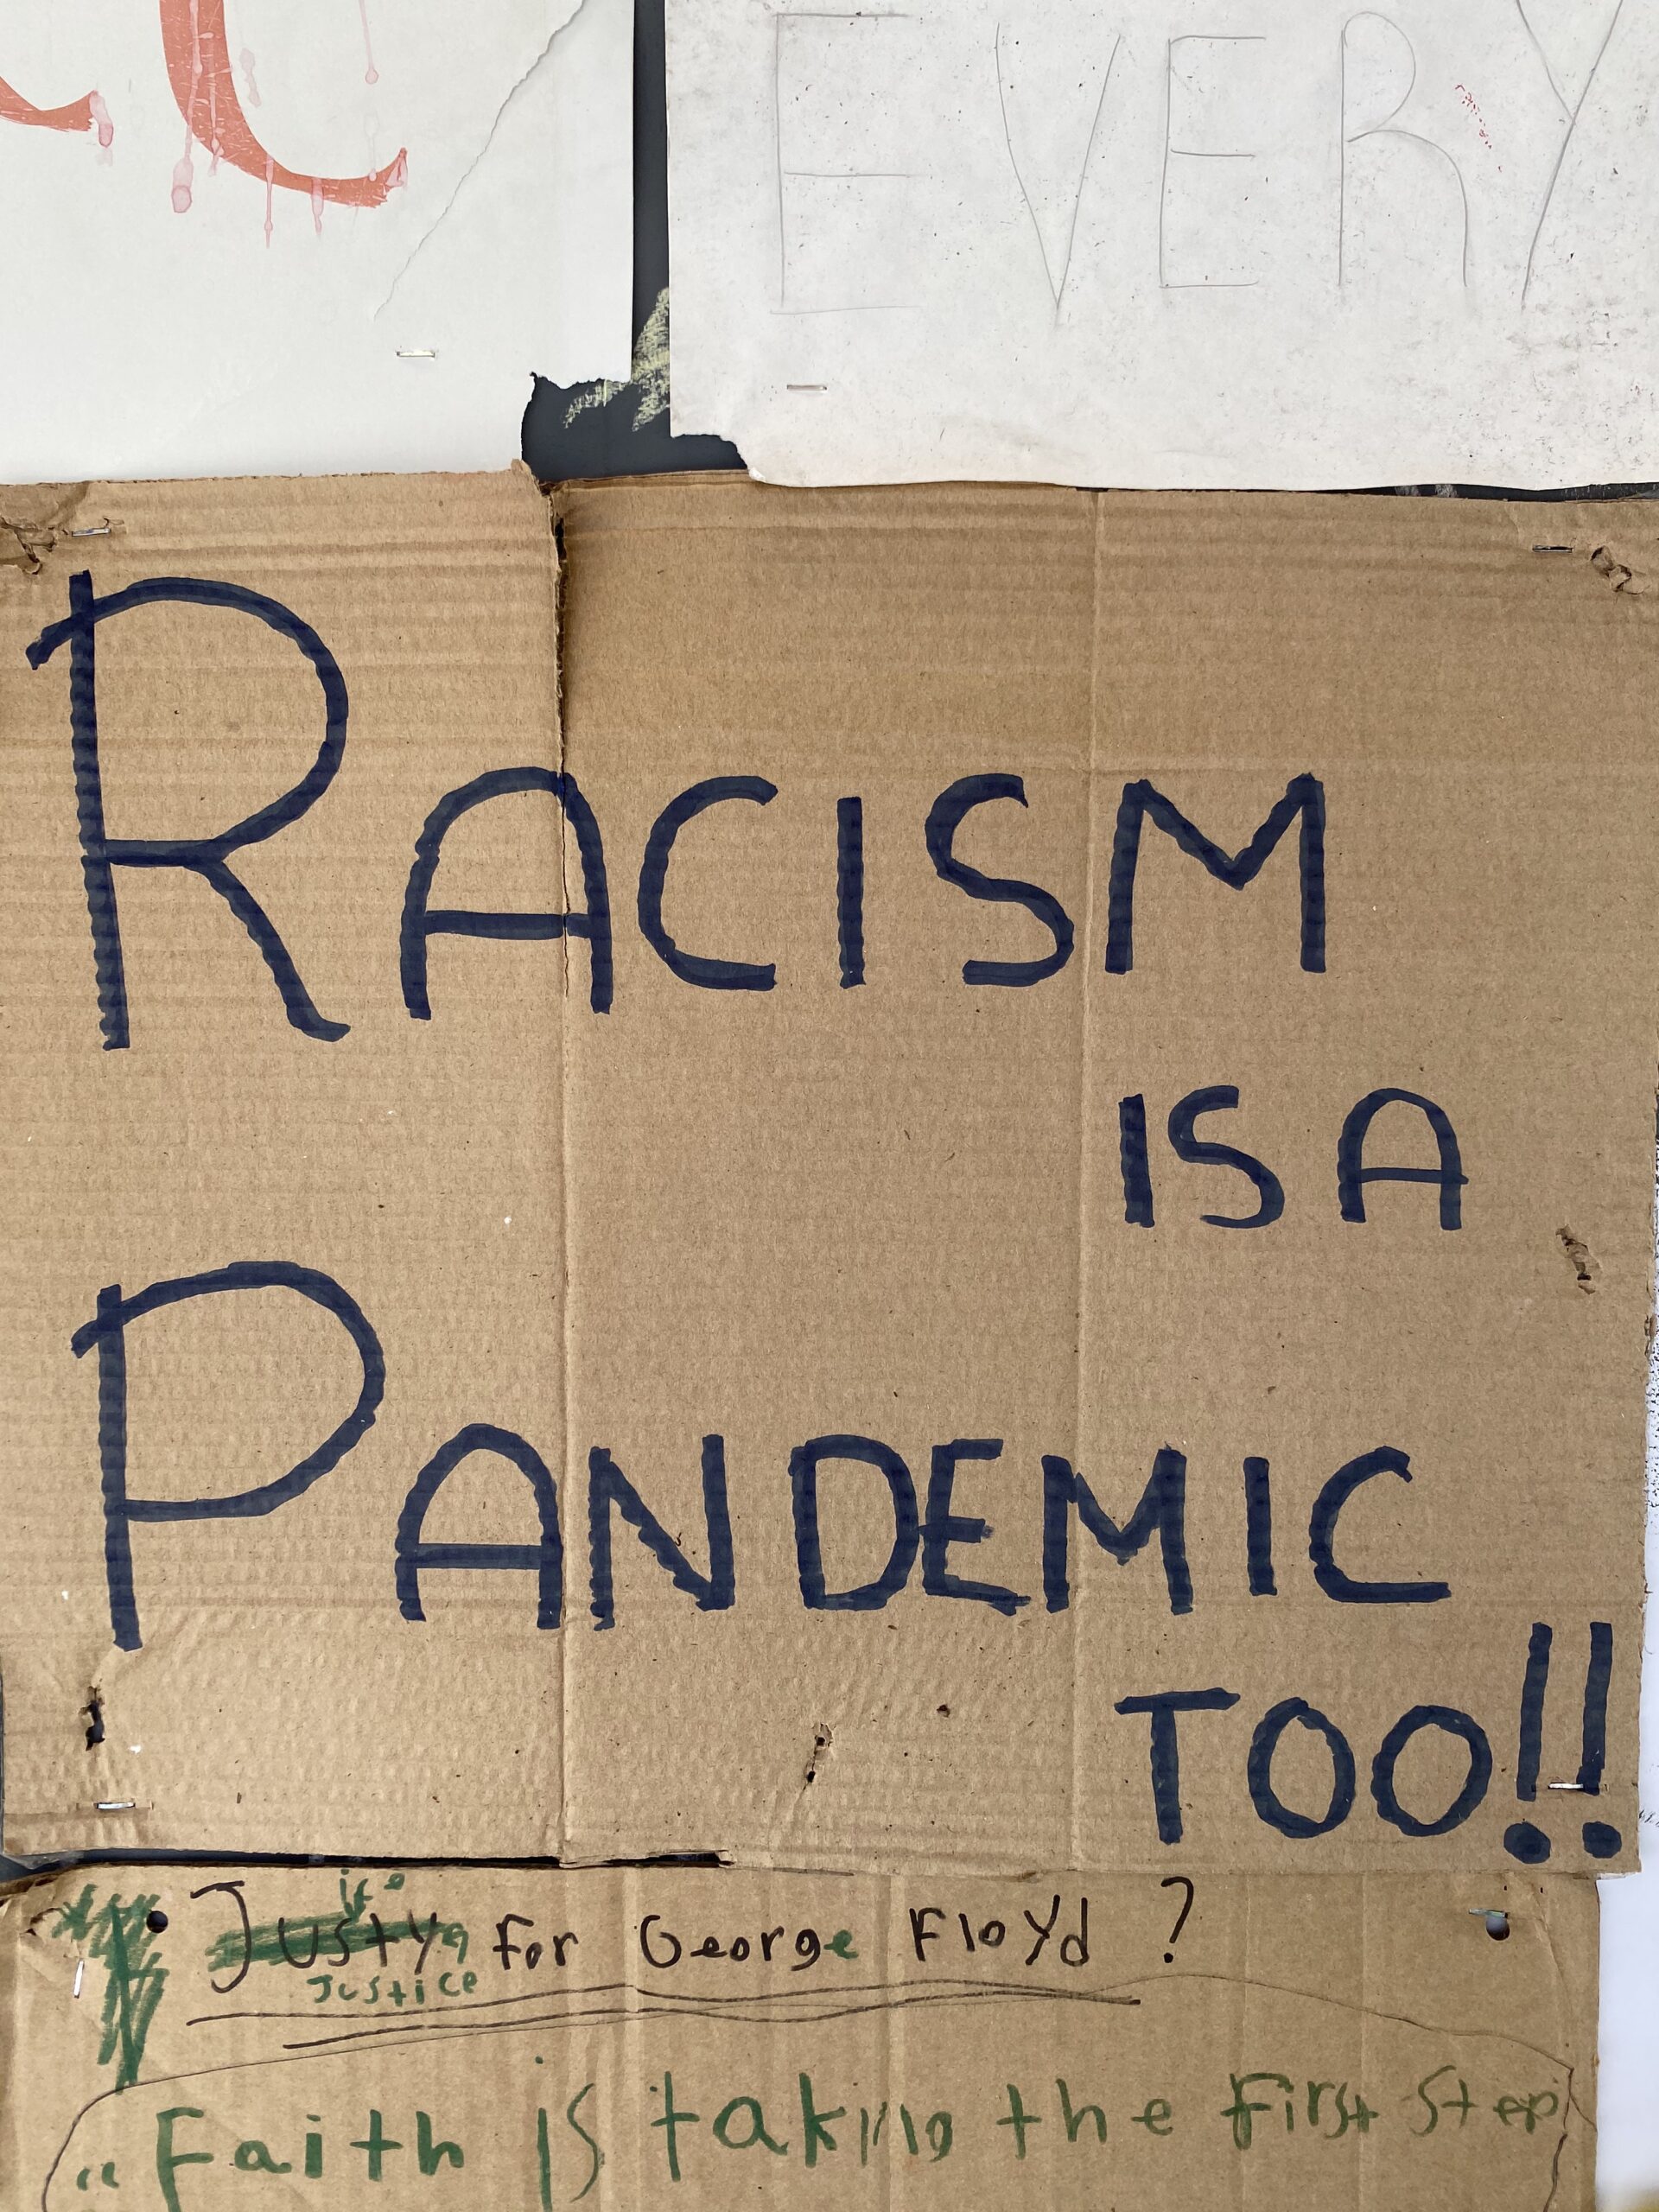 EVERY
RACISM
IS A
PANDEMIC
TOO!!
ice
Justy For George Floyd ?
Justice
"Faith is taking the First Step